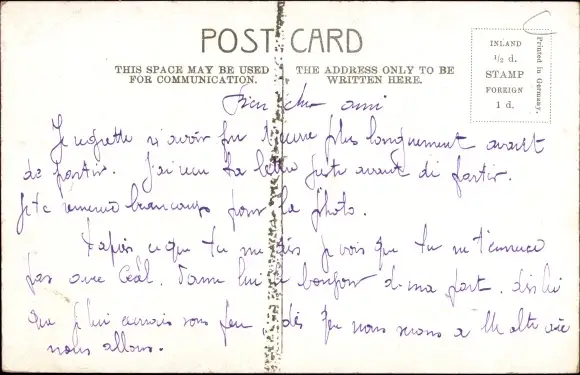 POST CARD
THIS SPACE MAY BE USED
FOR COMMUNICATION.
THE ADDRESS ONLY TO BE
WRITTEN HERE.
INLAND
½ d.
STAMP
FOREIGN
1 d.
Printed in Germany.
Bien cher ami
Je regrette n'avoir pu t'écrire plus longuement avant
de partir. J'ai reçu ta lettre juste avant de partir.
Je te remercie beaucoup pour la photo.
D'après ce que tu me dis je vois que tu ne t'ennuies
pas avec Donne lui le bonjour de ma part. dis lui
que je lui sous peu, dès que nous serons à Malte où
nous allons.